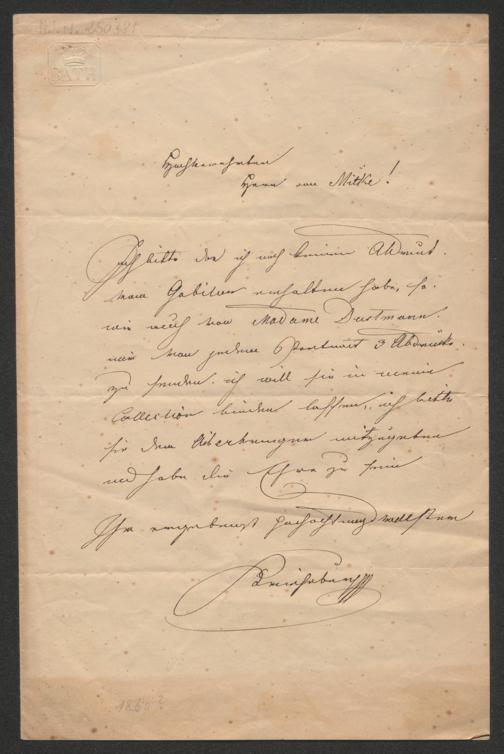 BATH
Hochverehrter
Herr von Mitke!
Ich bitte da ich noch keinen Abdruck
vom Gabilon erhalten habe, so
wie auch von Madame Dustmann
mir von jedem Portrait 3 Abdrücke
zu senden. ich will sie in meine
Collection binden lassen, ich bitte
sie dem Überbringer mitzugeben
und habe die Ehre zu sein
Ihr ergebenst hochachtungsvollster
Kriehuber
186 ?